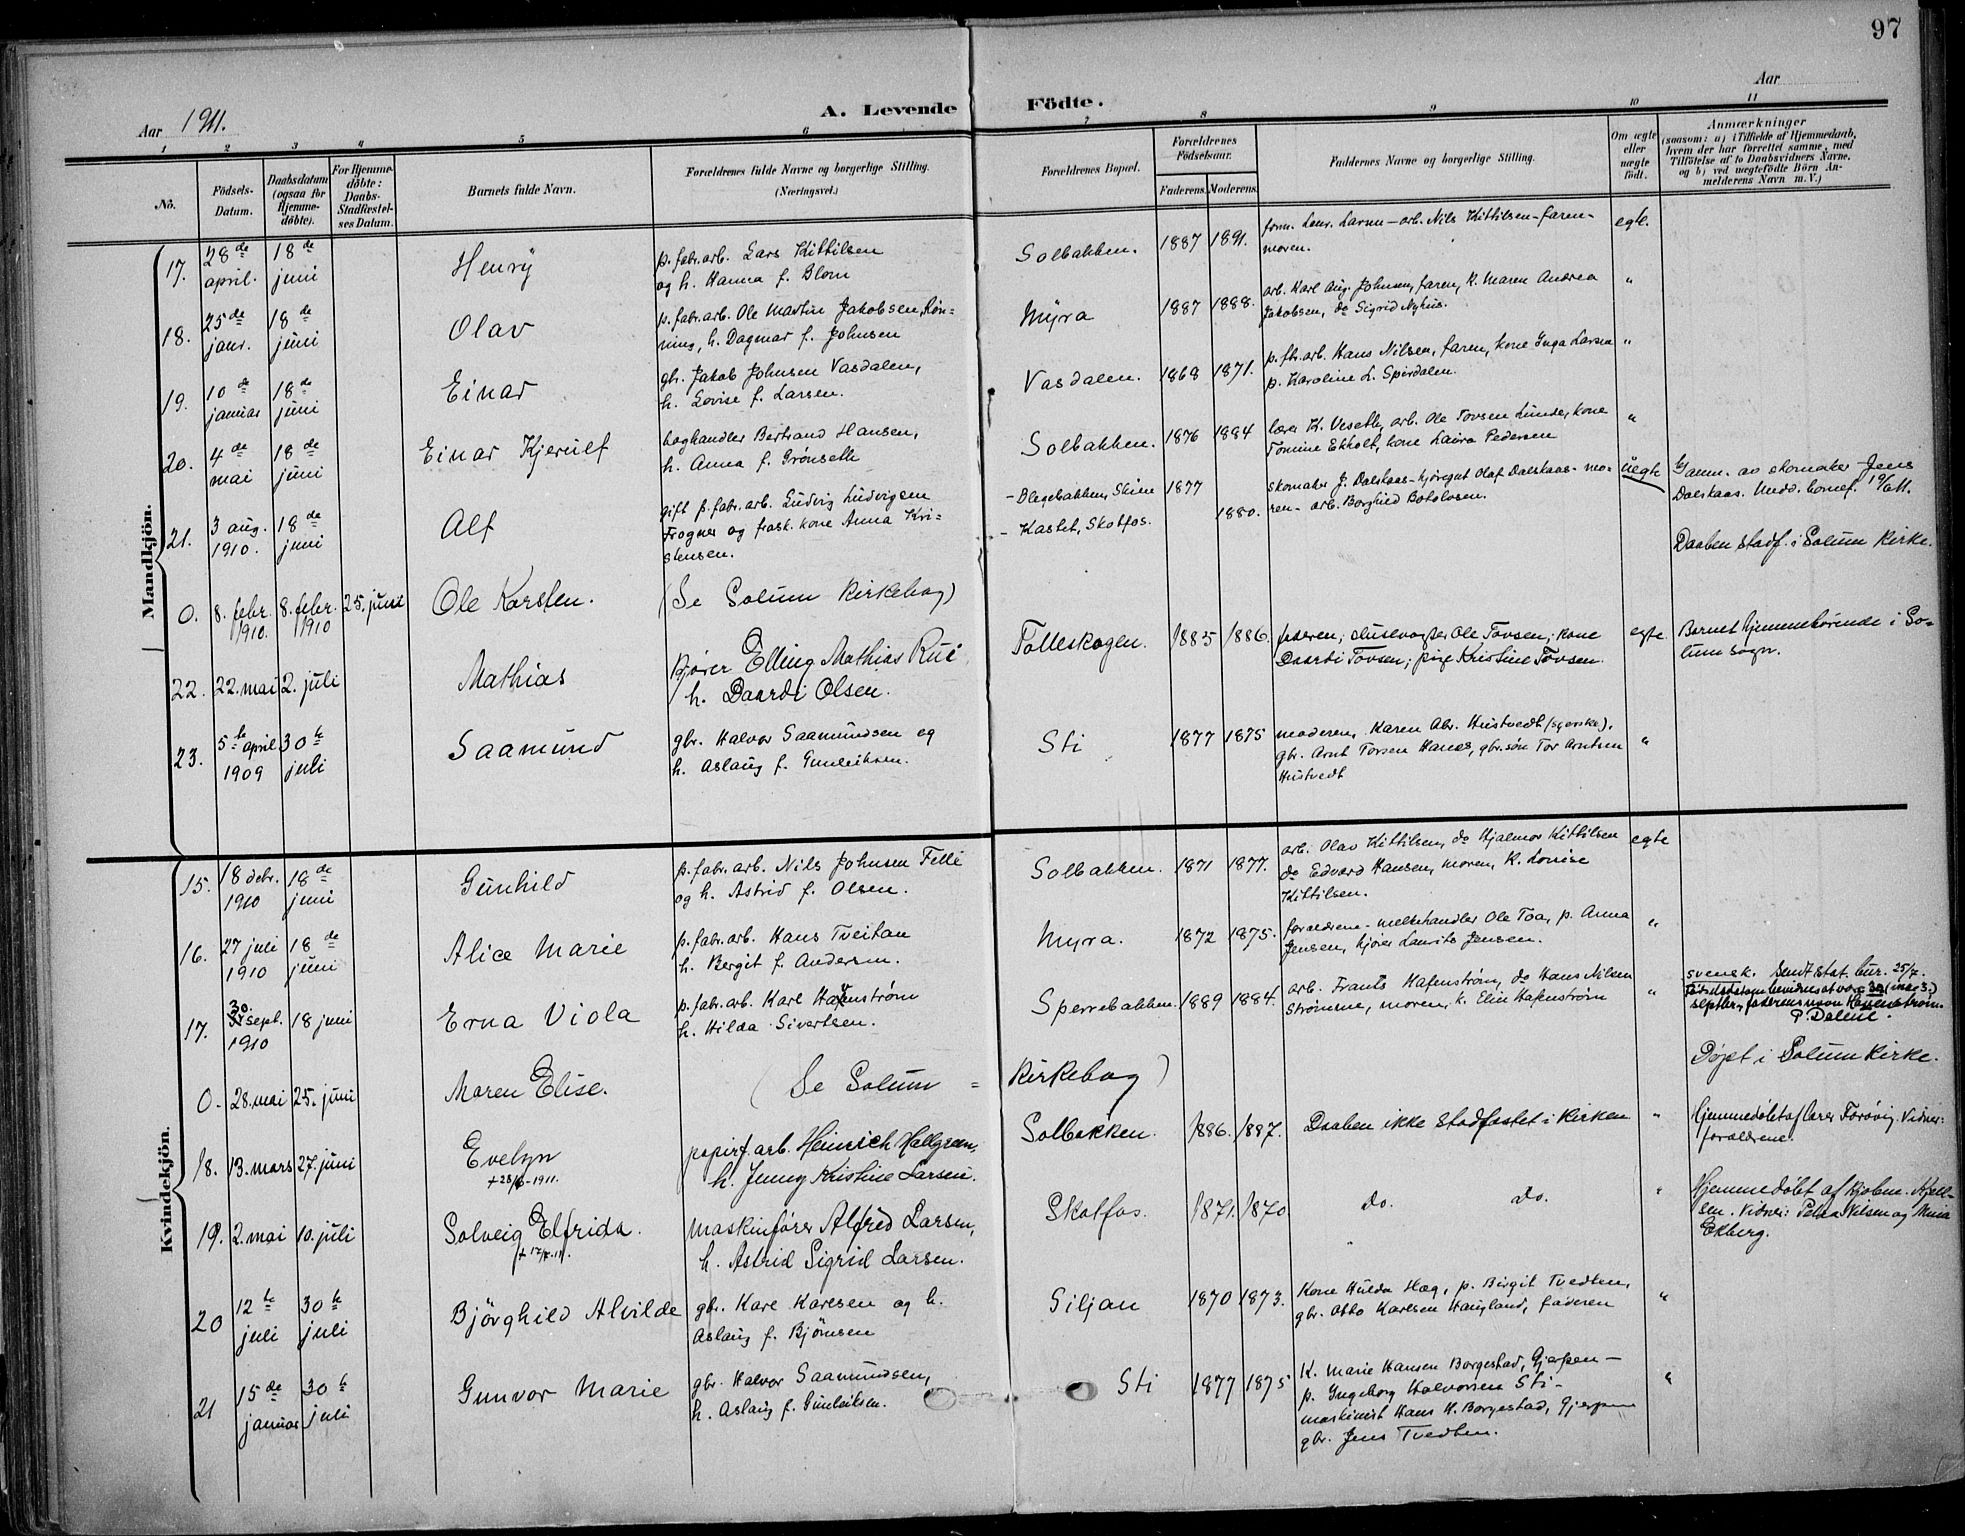 97
Aar 1911.
A. Levende Födte.
Aar
1 2 3 4 5 6 7 8 9 10 11
Nô.
Födsels-Datum.
Daabsdatum (ogsaa for Hjemme-döbte).
For Hjemme-döbte: Daabs-Stadfæstel-ses Datum.
Barnets fulde Navn.
Forældrenes fulde Navne og borgerlige Stilling. (Næringsvei.)
Forældrenes Bopæl.
Forældrenes Födselsaar.
Faderens. Moderens.
Faddernes Navne og borgerlige Stilling.
Om ægte eller uægte födt.
Anmærkninger
(saasom: a) i Tilfælde af Hjemmedaab,
hvem der har forrettet samme, med
Tilföielse af to Daabsvidners Navne,
og b) ved uægtefödte Börn An-
melderens Navn m. V.)
Mandkjön.
17. 28de april. 18de juni Henry p. fabr. arb. Lars Kittilsen
og h. Hanna f. Blom Solbakken. 1887 1891. form. Laur. Larsen – arb. Nils Kittilsen – faren –
moren. egte.
18. 25de janr. 18de juni Olav p. fabr. arb. Ole Martin Jakobsen, Røn-
ning, h. Dagmar f. Johnsen Myra 1887 1888. arb. Karl Aug. Johnsen, faren, k. Maren Andrea
Jakobsen, do Sigrid Nyhus. "
19. 10de januar 18de juni Einar gbr. Jakob Johnsen Vasdalen,
h. Lovise f. Larsen. Vasdalen. 1868 1871. p. fbr. arb. Hans Nilsen, faren, kone Inga Larsen
p. Karoline L. Spirdalen. "
20. 4de mai 18de juni Einar Kjerulf boghandler Bertrand Hansen,
h. Anna f. Grönseth Solbakken. 1876 1884 lærer K. Veseth, arb. Ole Tovsen Lunde, kone
Tomine Ekholt, kone Laura Pedersen "
21. 3 aug. 1910. 18de juni Alf gift p. fabr. arb. Ludvig Ludvigsen
Frogner og frask. kone Anna Kri-
stensen. – Blegebakken, Skien 1877
– Kastet, Skotfos. 1880. skomaker J. Dalskaas – kjöregut Olaf Dalskaas – mo-
ren – arb. Borghild Botolvsen. uegte Samm. av skomaker Jens
Dalskaas. Medd. bornef. 19/6 11.
0. 8. febr. 1910. 8. febr. 1910 25. juni Ole Karsten. (Se Solum Kirkebog) Daaben stadf. i Solum Kirke.
22. 22. mai 2. juli Mathias kjører Elling Mathias Rui
h. Daardi Olsen. Folleskogen. 1885 1886. faderen; slusevogter Ole Tovsen; kone
Daardi Tovsen; pige Kristine Tovsen. egte Barnet hjemmehörende i So-
lum sogn.
23. 5te april 1909 30te juli Saamund gbr. Halvor Saamundsen og
h. Aslaug f. Gunleiksen. Sti 1877 1875 moderen, Karen Abr. Hustvedt (syerske),
gbr. Arnt Torsen Hanes, gbr. sön Tor Arntsen
Hustvedt "
Kvindekjön.
15. 18 debr. 1910 18de juni Gunhild p. fabr. arb. Nils Johnsen Felle
og h. Astrid f. Olsen. Solbakken. 1871 1877. arb. Olav Kittilsen, do Hjalmar Kittilsen
do Edvard Hansen, moren, k. Louise
Kittilsen. egte
16. 27 juli 1910 18de juni Alice Marie p. fabr. arb. Hans Tveitan
h. Bergit f. Andersen. Myra. 1872 1875. forældrene – melkehandler Ole Toa, p. Anna
Jensen, kjörer Laurits Jensen. "
17. 30. sept. 1910 18 juni Erna Viola p. fabr. arb. Karl Havenström
h. Hilda Sivertsen. Sperrebakken 1889 1884. arb. Frants Hafenström, do Hans Nilsen
Strömme, moren, k. Elin Hafenström " svensk. Sendt stat. bur. 25/7.
septbr., faderens navn Havenström.
0. 28. mai 25. juni Maren Elise. (Se Solum = Kirkebog) Döpt i Solum Kirke.
18. 13. mars 27. juni Evelyn
+ 28/6 – 1911. papirf. arb. Heinrich Hallgreen,
h. Jenny Kristine Larsen. Solbakken. 1886. 1887. Daaben ikke stadfæstet i Kirken " Hjemmedøbt af lærer Forövig. Vidner:
forældrene.
19. 2. mai 10. juli Solveig Elfrida. maskinfører Alfred Larsen,
h. Astrid Sigrid Larsen. Skotfos. 1871. 1870 Do. Do. " Hjemmedøbt af Kjøbm.
Vidner: Petra Nilsen og
Ekberg.
20 12te juli 30te juli Bjørghild Alvilde gbr. Karl Karlsen og h.
Aslaug f. Bjørnsen Siljan 1870 1873. Kone Hulda Hæg, p. Birgit Tvedten,
gbr. Otto Karlsen Haugland, faderen "
21 15de januar 30te juli Gunvor Marie gbr. Halvor Saamundsen,
h. Aslaug f. Gunleiksen. Sti 1877 1875 K. Marie Hansen Borgestad, Gjerpen –
p. Ingeborg Halvorsen Sti –
maskinist Hans H. Borgestad, Gjerpen
gbr. Jens Tvedten. "